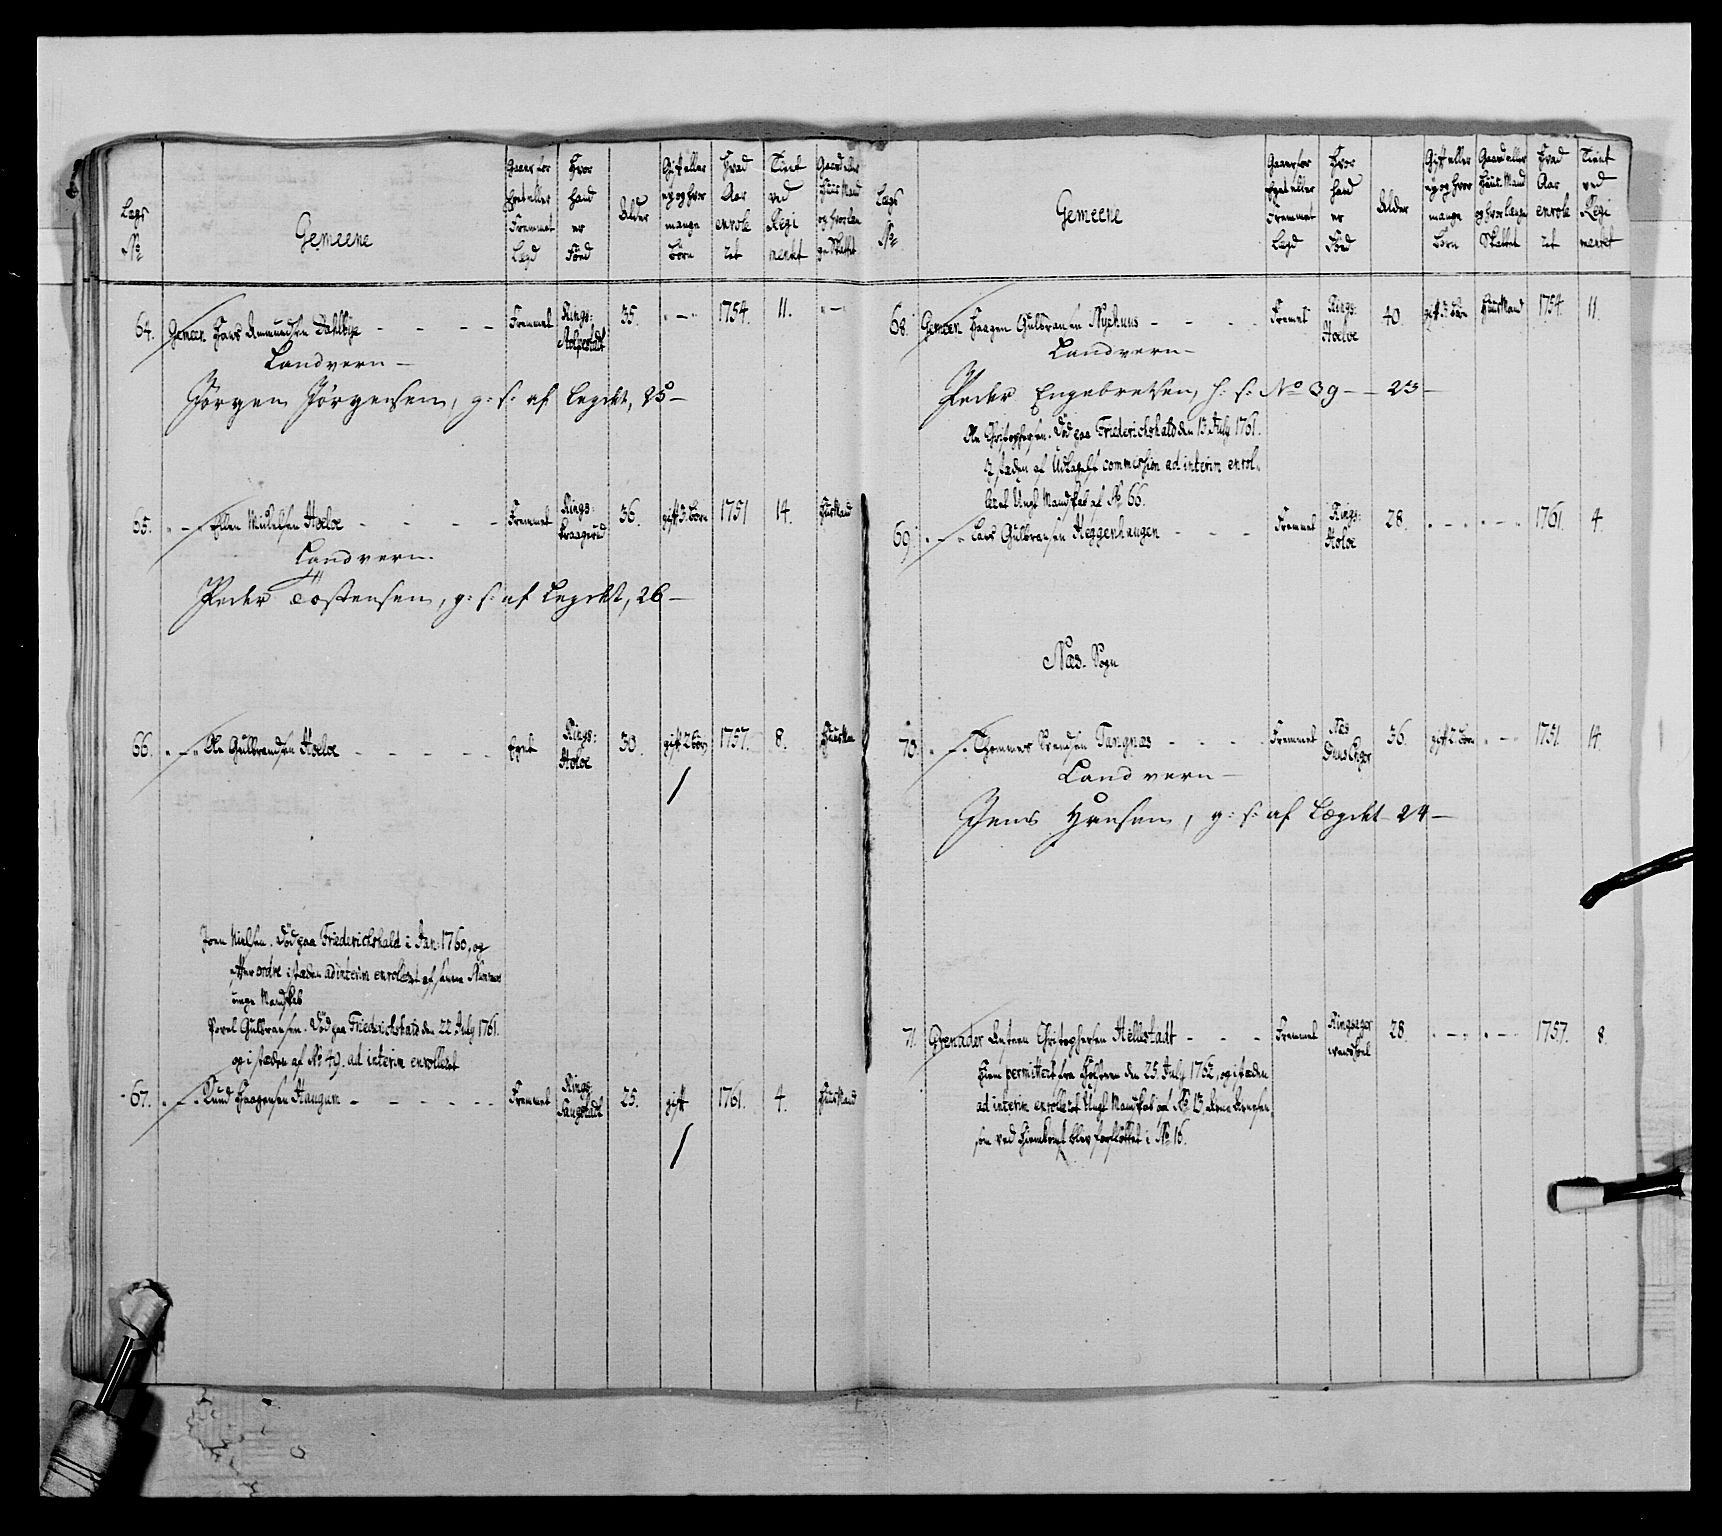 Lægs
No
Gemeene
Gaaer for
Eget eller
Fremmet
Lægd
Hvor
hand
er
Föed
Alder
Gift eller
ey og hvor
mange
Börn
Hvad
Aar
enrole
ret
Tient
ved
Regi
mentet
Gaard eller
Huus Mand
64.
Gemeen Hans Amundsen Dahlbye - - - - Fremmet Rings: 35. " — " 1754. 11. " — "
Landvern —
Jörgen Jörgensen, g: s: af Legdet, 25 —
65. " — " Ellen Michelsen Hoeloe - - - - Fremmet Rings: Kraagerud 36. gift 3 Börn 1751 14. Huusmand
Landvern.
Peder Töstensen, g: s: af Legdet, 26 —
66. " — " Ole Gulbrandsen Hoeloe - - - - - Eget Rings: Holoe 30. gift 2 Börn 1757. 8.
Joen Nielsen. Död paa Friederichshald i Jan: 1760, og
efter ordre i stæden ad interim enrolleret af samme Nummer
unge Mandskab
Povel Gulbransen. Död paa Friederichshald den 22 July 1761.
og i stæden af No 49. ad interim enrolleret
67. " — " Knud Haagensen Haugum - - - - - Fremmet Rings: 25. gift 1761. 4. Huusmand
Lægs
No
Gemeene
Gaaer for
Eget eller
Fremmet
Lægd
Hvor
hand
er
Föed
Alder
Gift eller
ey og hvor
mange
Börn
Gaard eller
Huus Mand
og hvor længe
Skattet
Hvad
Aar
enrole
ret
Tient
ved
Regi
mentet
68. Gemeen Haagen Gulbransen Nyehuus - - - - Fremmet Rings: Hoeloe 40. gift 3 Börn Huusmand 1754. 11.
Landvern —
Peder Engebretsen, h: s: No 39 — 23 —
Ole Christophersen. Död paa Friederichshald den 13 July 1761.
I stæden af Udlagelse commission ad interim enrol-
leret Ungt Mandskab af No 66.
69. " — " Lars Gulbransen Heggenhaugen - - - Fremmet Rings: Holoe 28. " - - " - - " 1761. 4
Næs Sogn
70. " — " Svendsen Tangnæs - - - - Fremmet Næs 36. gift 2 Börn " — " 1751. 14.
Landvern —
Jens Hansen, g: s: af Lægdet 24 —
71. Grenader Christophersen Hellestadt - - - Fremmet Ringsager 28. " - - " - - " 1757. 8.
Hiem permittert fra den 25 July 1762, og i stæden
ad interim enrolleret Ungt Mandskab af No 13,
som ved Hiemkomst blev forflöttet i No 16.